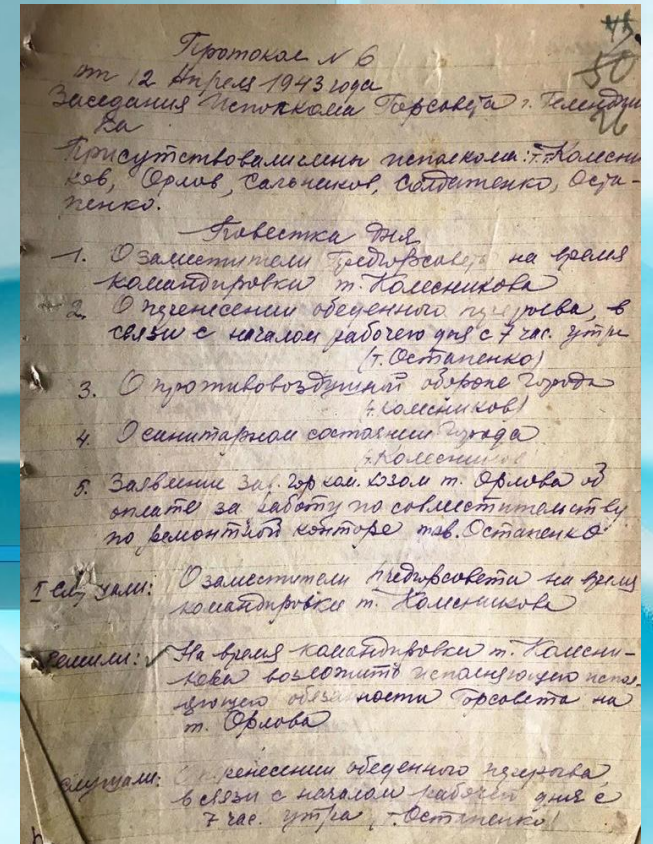 50
26
Протокол № 6
от 12 Апреля 1943 года
Заседания Исполкома Горсовета г. Геленджи
ка
Присутствовали члены исполкома: т.т. Колесни
ков, Орлов, Сальников, Солдатенко, Оста-
пенко.
Повестка дня
1. О заместители Предгорсовета на время
командировки т. Колесникова
2. О перенесении обеденного перерыва, в
связи с началом рабочего дня с 7 час. утра
(т. Остапенко)
3. О противовоздушной обороне города
(т. Колесников)
4. О санитарном состоянии города
т. Колесников
5. Заявление Зав. гор ком. хозом т. Орлова об
оплате за работу по совместительству
по ремонтной конторе тов. Остапенко
I слушали: О заместители предгорсовета на время
командировки т. Колесникова
Решили: На время командировки т. Колесни-
кова возложить исполняющего испол-
няющего обязанности Горсовета на
т. Орлова
слушали: О перенесении обеденного перерыва
в связи с началом рабочего дня с
7 час. утра (т. Остапенко)